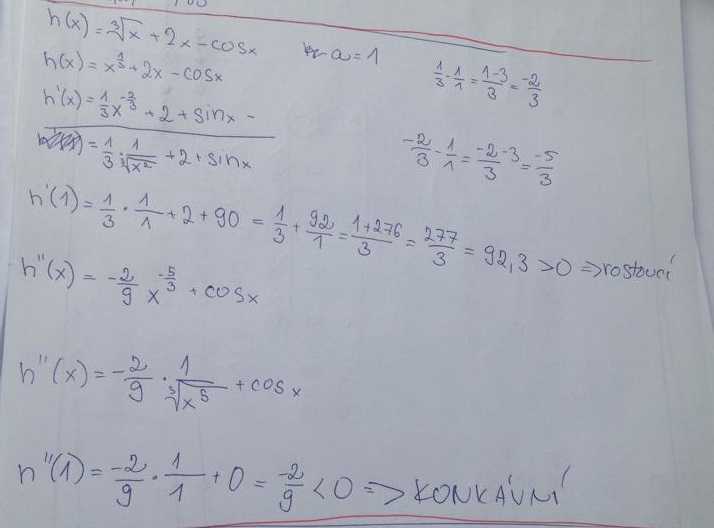 h(x) = ∛x + 2x - cosx
a = 1
h(x) = x^(1/3) + 2x - cosx
1/3 - 1/1 = (1-3)/3 = -2/3
h'(x) = 1/3 x^(-2/3) + 2 + sinx -
= 1/3 · 1/∛(x²) + 2 + sinx
-2/3 - 1/1 = (-2-3)/3 = -5/3
h'(1) = 1/3 · 1/1 + 2 + 90 = 1/3 + 92/1 = (1+276)/3 = 277/3 = 92,3 > 0 => rostoucí
h''(x) = -2/9 x^(-5/3) + cosx
h''(x) = -2/9 · 1/∛(x⁵) + cosx
h''(1) = -2/9 · 1/1 + 0 = -2/9 < 0 => KONKÁVNÍ